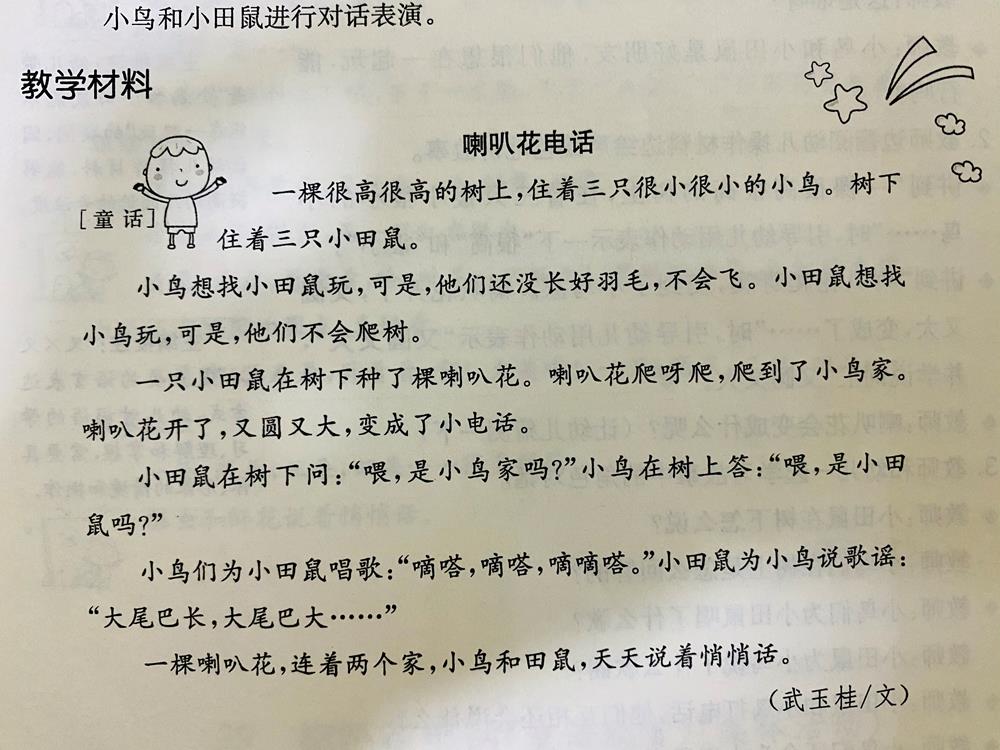 小鸟和小田鼠进行对话表演。
教学材料
喇叭花电话
[童话]
一棵很高很高的树上，住着三只很小很小的小鸟。树下
住着三只小田鼠。
小鸟想找小田鼠玩，可是，他们还没长好羽毛，不会飞。小田鼠想找
小鸟玩，可是，他们不会爬树。
一只小田鼠在树下种了棵喇叭花。喇叭花爬呀爬，爬到了小鸟家。
喇叭花开了，又圆又大，变成了小电话。
小田鼠在树下问：“喂，是小鸟家吗？”小鸟在树上答：“喂，是小田
鼠吗？”
小鸟们为小田鼠唱歌：“嘀嗒，嘀嗒，嘀嘀嗒。”小田鼠为小鸟说歌谣：
“大尾巴长，大尾巴大……”
一棵喇叭花，连着两个家，小鸟和田鼠，天天说着悄悄话。
（武玉桂/文）